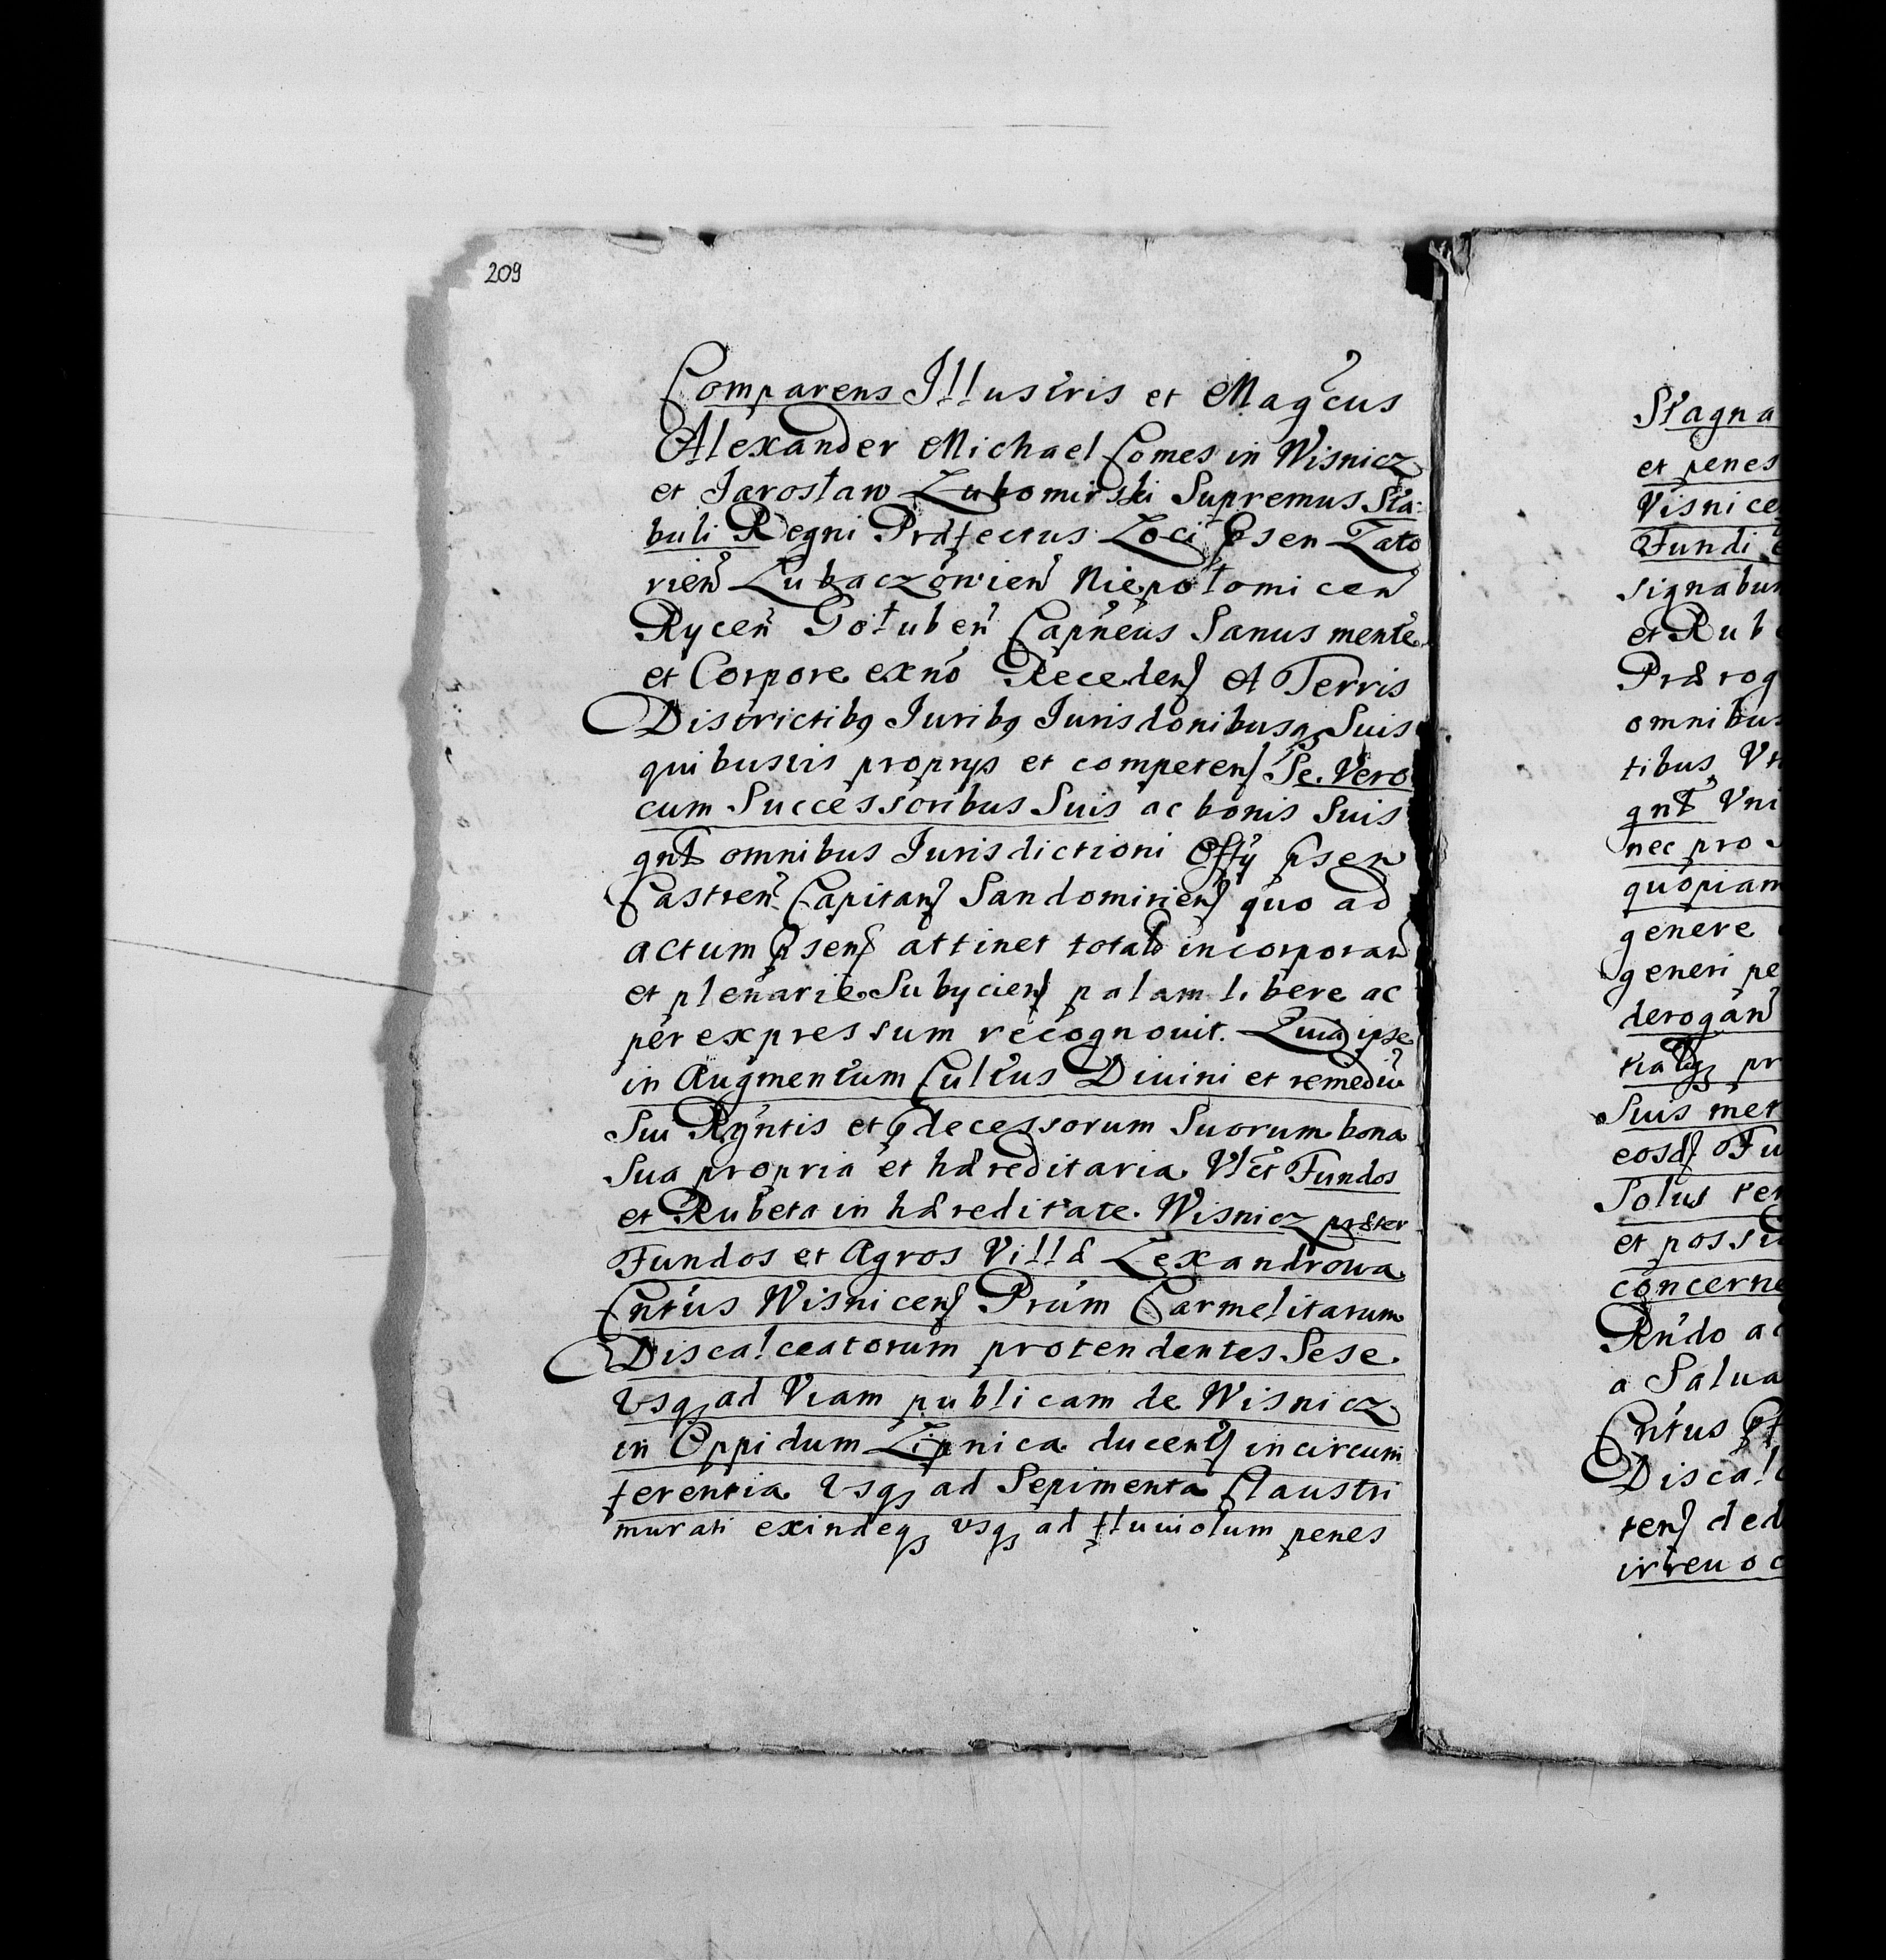 209
Comparens Illustris et Magcus
Alexander Michael Comes in Wisnicz
et Jarosław Lubomirski Supremus Sta:
buli Regni Præfectus Loci Psen Zato
rien Lubaczowien Niepołomicen
Rycen Gołuben Capneus Sanus mente
et Corpore exno Recedens A Terris
Districtibq Juribq Jurisdonibusq Suis
quibusvis proprys et competens Se Vero
cum Successoribus Suis ac bonis Suis
gnt omnibus Jurisdictioni Offy psen
Castren Capitans Sandomiriens quo ad
actum psens attinet totalr incorporan
et plenarie Subyciens palam libere ac
per expressum recognouit. Quia ipse
in Augmentum Cultus Diuini et remediu
Sui Rgntis et pdecessorum Suorum bona
Sua propria et hæreditaria Vlct Fundos
et Rubeta in hæreditate Wisnicz præter
Fundos et Agros Villæ Lexandrowa
Cntus Wisnicens Prum Carmelitarum
Discalceatorum protendentes Sese
Vsq ad Viam publicam de Wisnicz
in Oppidum Lipnica ducents in circum
ferentia Vsq ad Sepimenta Claustri
murati exindeq vsq ad fluuiolum penes
Stagna
et penes
Visnice
Fundi
signabun
et Rub
Prærog
omnibus
tibus Vn
gnt Vni
nec pro
quopiam
genere
generi pe
derogan
pr
Suis met
eosd Fu
Solus ten
et possid
concerne
Rndo ac
a Salua
Cntus
Discalc
tens ded
irreuoc